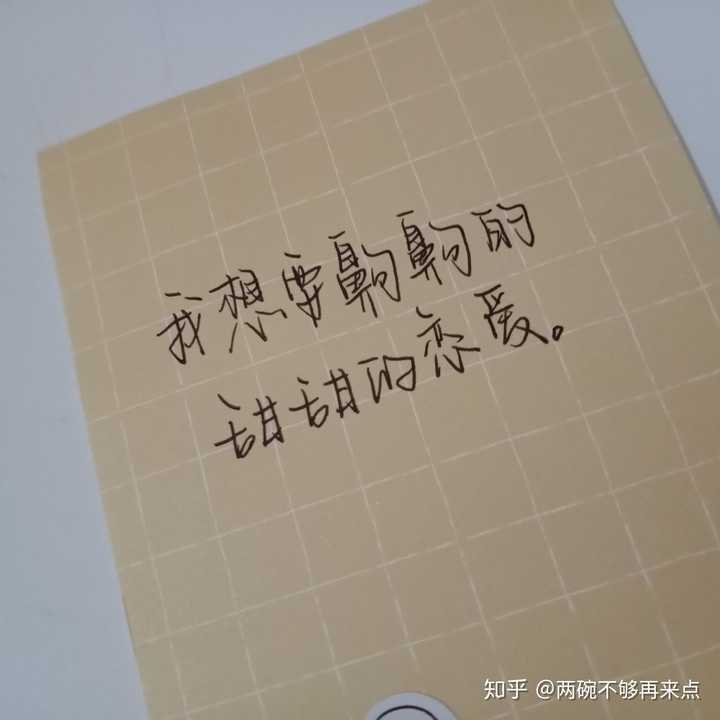 我想要齁齁的
甜甜的恋爱。
知乎 @两碗不够再来点